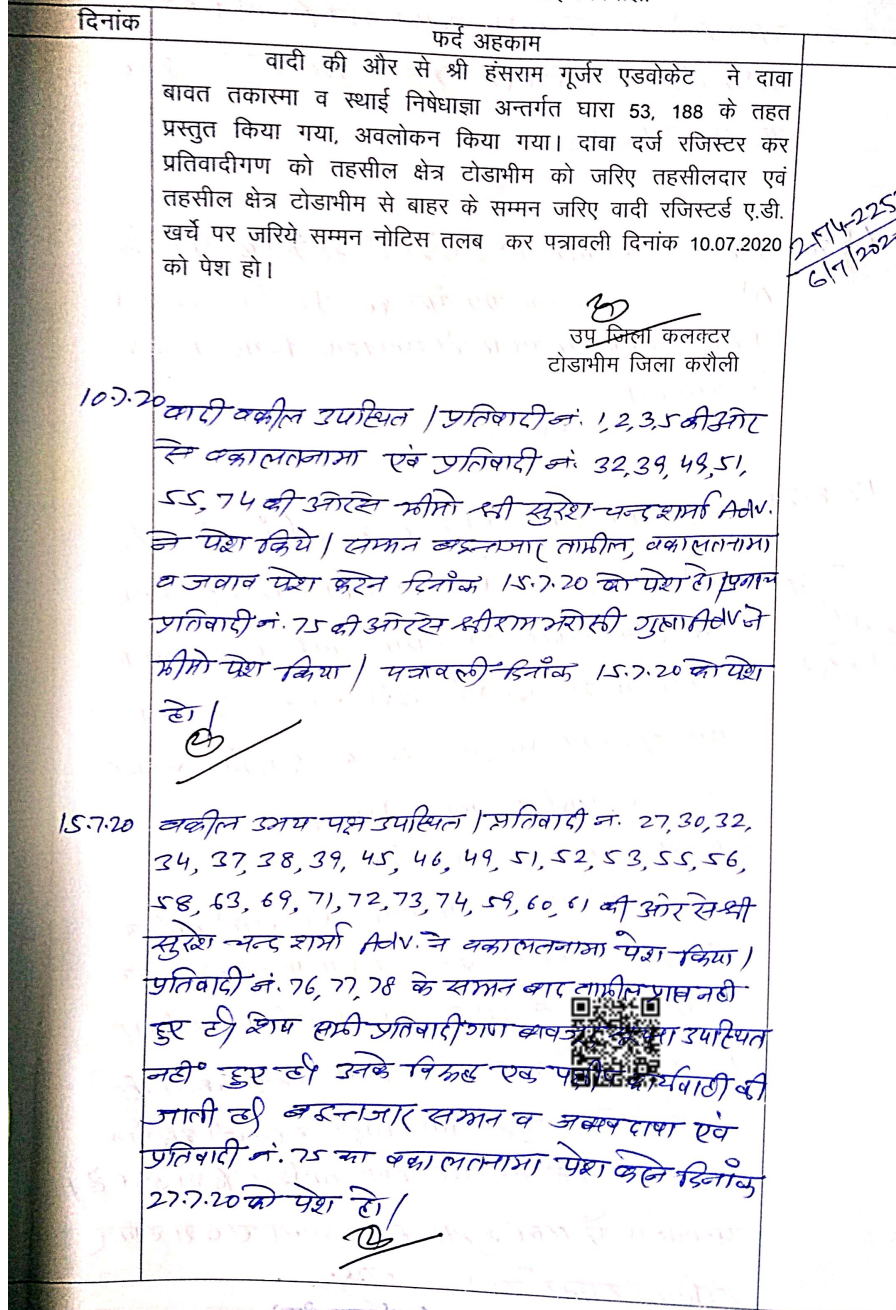 दिनांक
फर्द अहकाम
वादी की और से श्री हंसराम गूर्जर एडवोकेट ने दावा
बावत तकास्मा व स्थाई निषेधाज्ञा अन्तर्गत घारा 53, 188 के तहत
प्रस्तुत किया गया, अवलोकन किया गया। दावा दर्ज रजिस्टर कर
प्रतिवादीगण को तहसील क्षेत्र टोडाभीम को जरिए तहसीलदार एवं
तहसील क्षेत्र टोडाभीम से बाहर के सम्मन जरिए वादी रजिस्टर्ड ए.डी.
खर्चे पर जरिये सम्मन नोटिस तलब कर पत्रावली दिनांक 10.07.2020
को पेश हो।
2174-225
6/7/202
उप जिला कलक्टर
टोडाभीम जिला करौली
10.7.20 वादी वकील उपस्थित। प्रतिवादी नं. 1,2,3,5 की ओर
से वकालतनामा एवं प्रतिवादी नं. 32,39,49,51,
55,74 की ओर से मीमो श्री सुरेश चन्द शर्मा Adv.
ने पेश किये। सम्मन बइन्तजार तामील, वकालतनामा
व जवाब पेश करने दिनाँक 15.7.20 को पेश हो।
प्रतिवादी नं. 75 की ओर से श्री राम भरोसी गुप्ता Adv ने
मीमो पेश किया। पत्रावली दिनाँक 15.7.20 को पेश
हो।
15.7.20 वकील उभय पक्ष उपस्थित। प्रतिवादी नं. 27,30,32,
34,37,38,39,45,46,49,51,52,53,55,56,
58,63,69,71,72,73,74,59,60,61 की ओर से श्री
सुरेश चन्द शर्मा Adv. ने वकालतनामा पेश किया।
प्रतिवादी नं. 76,77,78 के सम्मन बाद तामील प्राप्त नही
हुए है। शेष सभी प्रतिवादीगण उपस्थित
नहीं हुए है। उनके विरूद्ध एक कार्यवाही की
जाती है। बइन्तजार सम्मन व जवाब दावा एवं
प्रतिवादी नं. 75 का वकालतनामा पेश करने दिनाँक
27.7.20 को पेश हो।